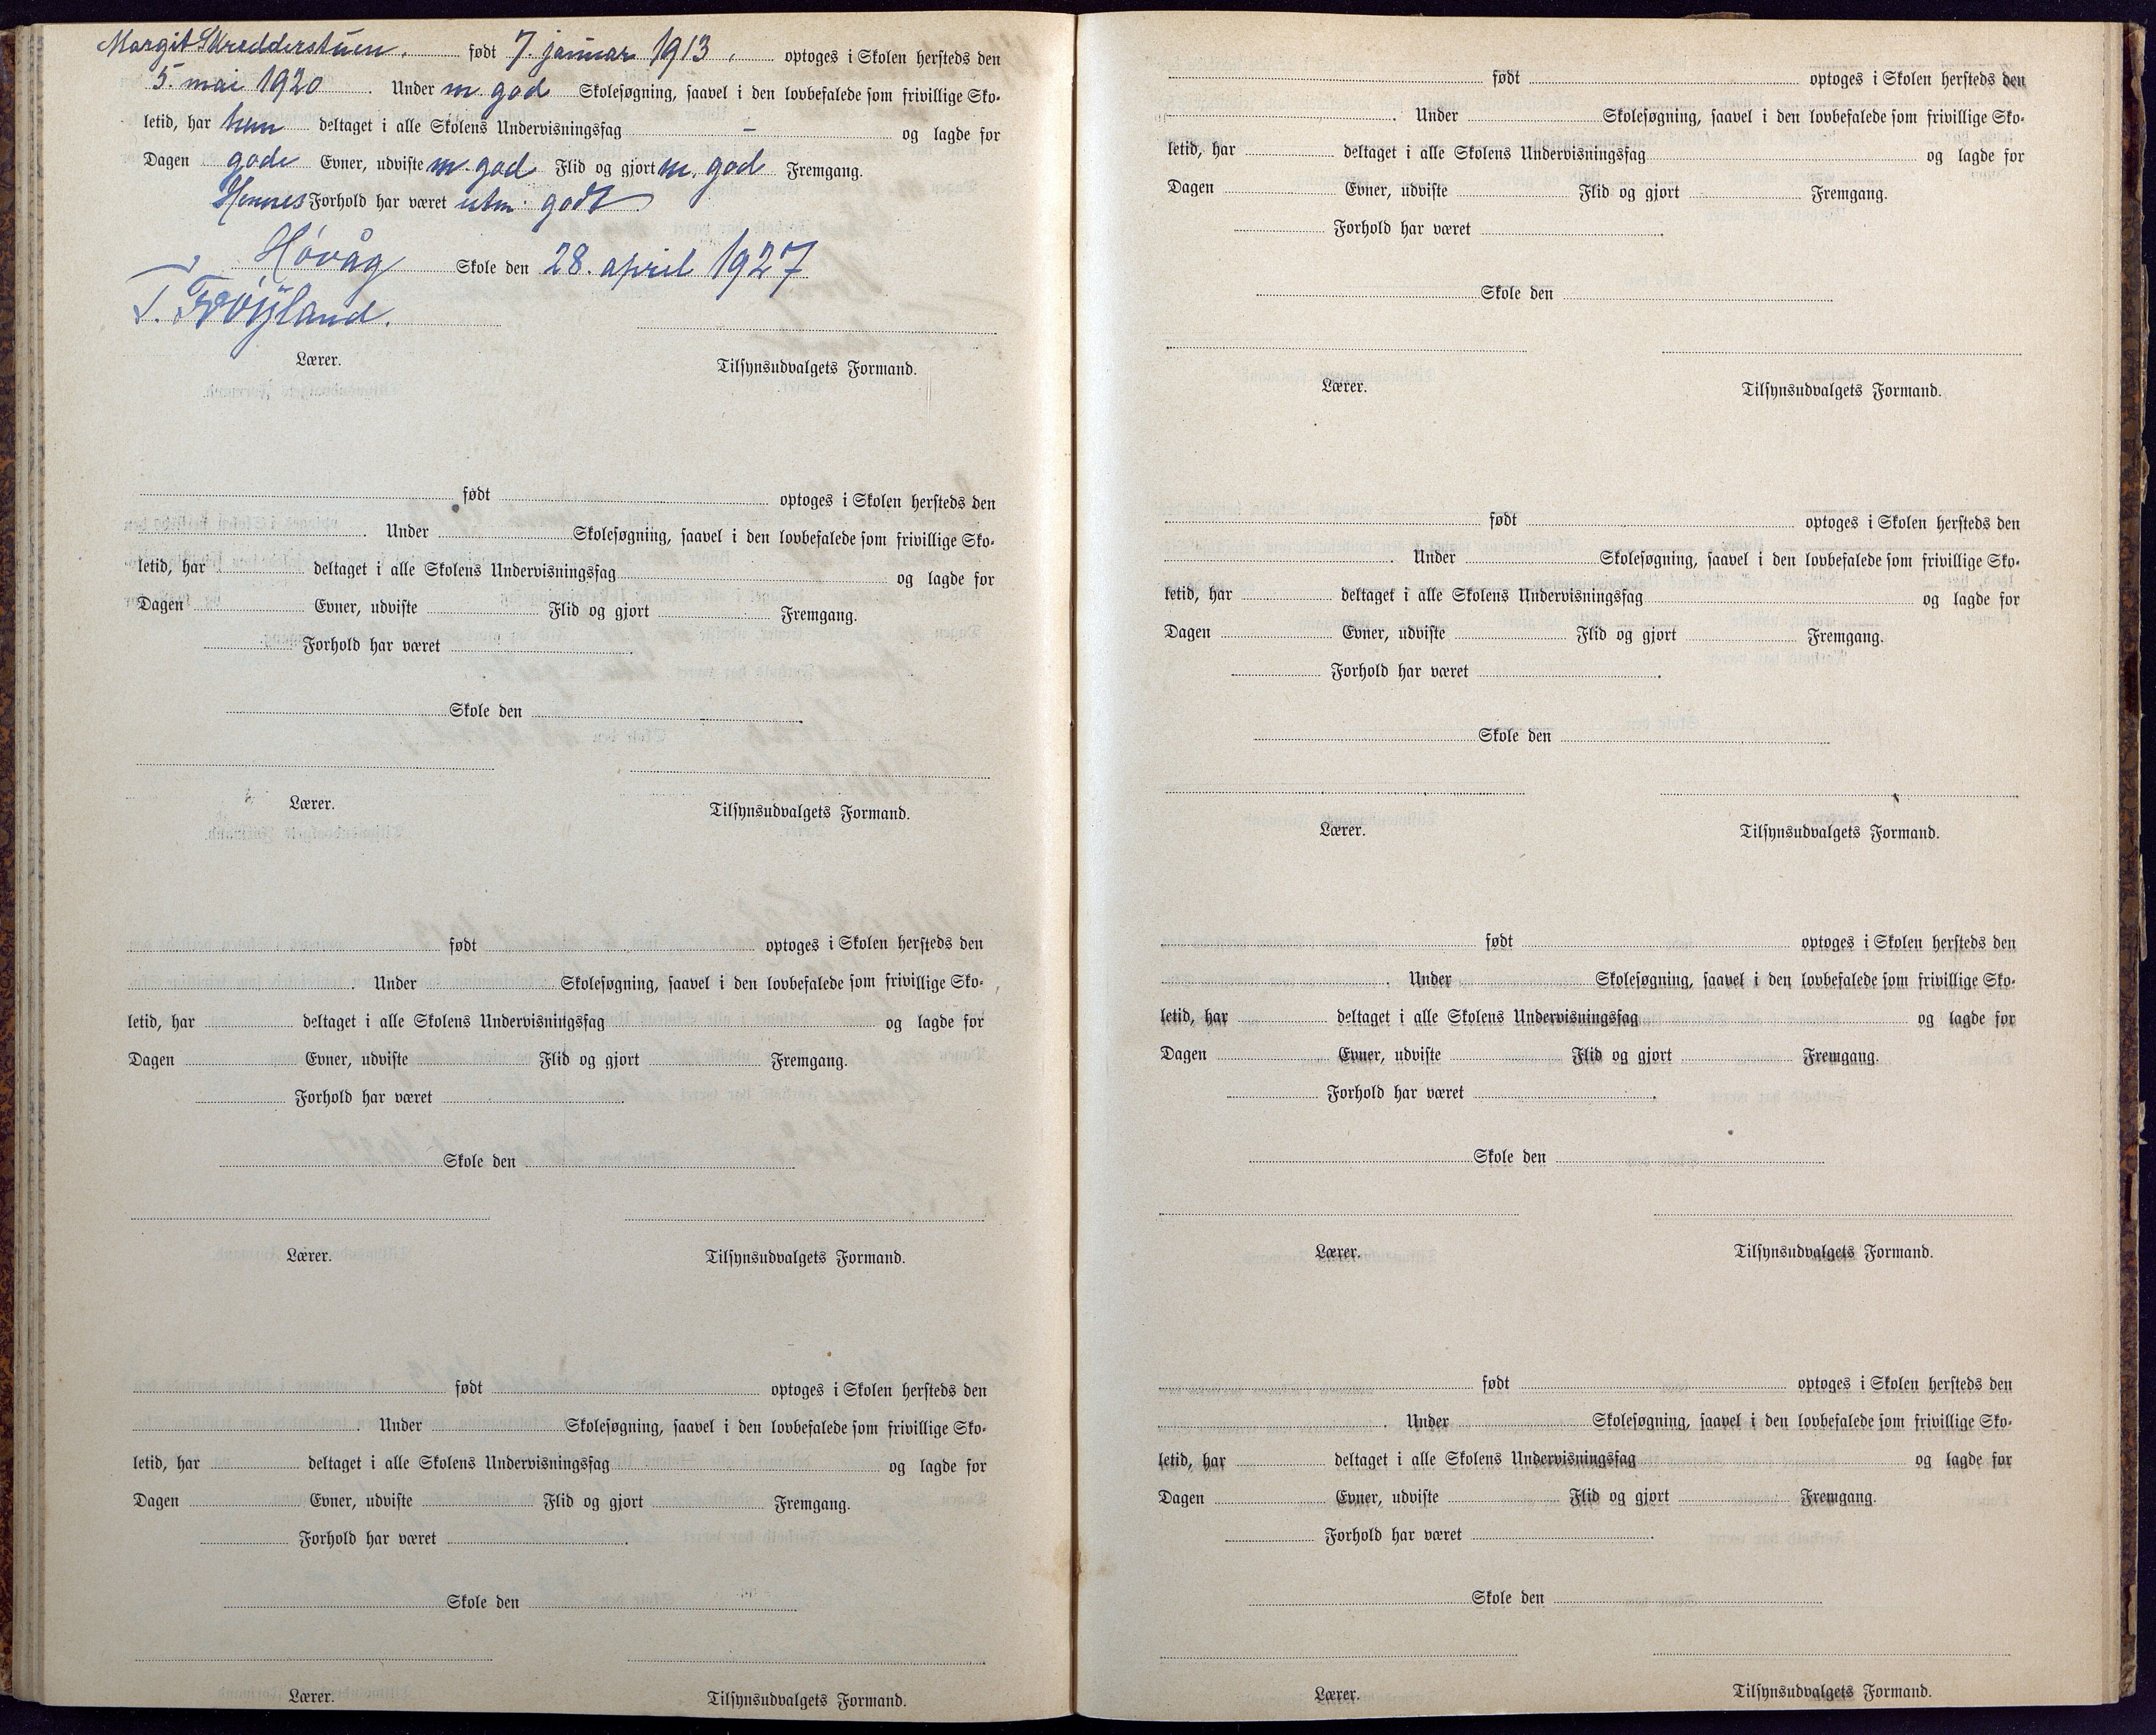 Margit Skredderstuen. født 7. januar 1913. optoges i Skolen hersteds den
5. mai 1920. Under m. god Skolesøgning, saavel i den lovbefalede som frivillige Sko-
letid, har hun deltaget i alle Skolens Undervisningsfag - og lagde for
Dagen gode Evner, udviste m. god Flid og gjort m. god Fremgang.
Hennes Forhold har været utm. godt
Høvåg Skole den 28. april 1927
T. Frøÿland.
Lærer. Tilsynsudvalgets Formand.
født optoges i Skolen hersteds den
. Under Skolesøgning, saavel i den lovbefalede som frivillige Sko-
letid, har deltaget i alle Skolens Undervisningsfag og lagde for
Dagen Evner, udviste Flid og gjort Fremgang.
Forhold har været .
Skole den
Lærer. Tilsynsudvalgets Formand.
født optoges i Skolen hersteds den
. Under Skolesøgning, saavel i den lovbefalede som frivillige Sko-
letid, har deltaget i alle Skolens Undervisningsfag og lagde for
Dagen Evner, udviste Flid og gjort Fremgang.
Forhold har været .
Skole den
Lærer. Tilsynsudvalgets Formand.
født optoges i Skolen hersteds den
. Under Skolesøgning, saavel i den lovbefalede som frivillige Sko-
letid, har deltaget i alle Skolens Undervisningsfag og lagde for
Dagen Evner, udviste Flid og gjort Fremgang.
Forhold har været .
Skole den
Lærer. Tilsynsudvalgets Formand.
født optoges i Skolen hersteds den
. Under Skolesøgning, saavel i den lovbefalede som frivillige Sko-
letid, har deltaget i alle Skolens Undervisningsfag og lagde for
Dagen Evner, udviste Flid og gjort Fremgang.
Forhold har været .
Skole den
Lærer. Tilsynsudvalgets Formand.
født optoges i Skolen hersteds den
. Under Skolesøgning, saavel i den lovbefalede som frivillige Sko-
letid, har deltaget i alle Skolens Undervisningsfag og lagde for
Dagen Evner, udviste Flid og gjort Fremgang.
Forhold har været .
Skole den
Lærer. Tilsynsudvalgets Formand.
født optoges i Skolen hersteds den
. Under Skolesøgning, saavel i den lovbefalede som frivillige Sko-
letid, har deltaget i alle Skolens Undervisningsfag og lagde for
Dagen Evner, udviste Flid og gjort Fremgang.
Forhold har været .
Skole den
Lærer. Tilsynsudvalgets Formand.
født optoges i Skolen hersteds den
. Under Skolesøgning, saavel i den lovbefalede som frivillige Sko-
letid, har deltaget i alle Skolens Undervisningsfag og lagde for
Dagen Evner, udviste Flid og gjort Fremgang.
Forhold har været .
Skole den
Lærer. Tilsynsudvalgets Formand.